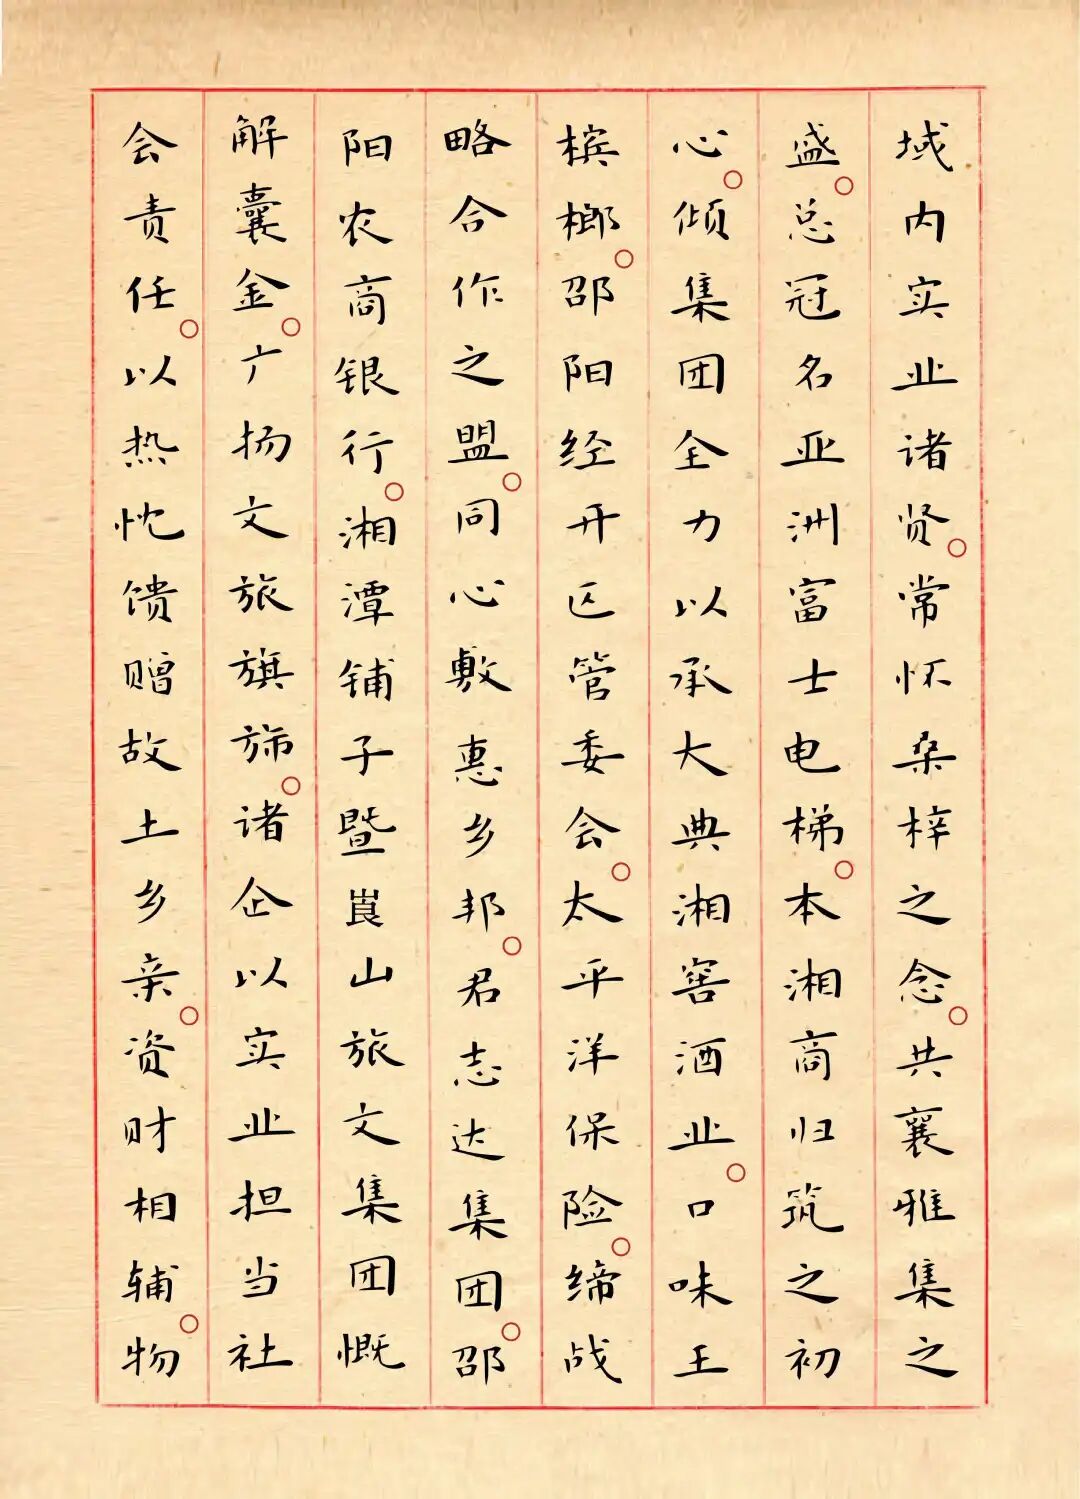 域内实业诸贤。常怀桑梓之念。共襄雅集之
盛。总冠名亚洲富士电梯。本湘商归筑之初
心。倾集团全力以承大典湘窖酒业。口味王
槟榔。邵阳经开区管委会。太平洋保险。缔战
略合作之盟。同心敷惠乡邦。君志达集团。邵
阳农商银行。湘潭铺子暨崀山旅文集团慨
解囊金。广扬文旅旗旆。诸企以实业担当社
会责任。以热忱馈赠故土乡亲。资财相辅。物